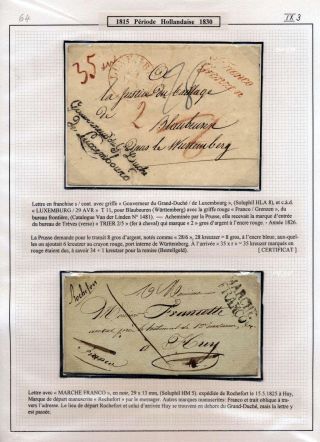 64
1815 Période Hollandaise 1830
IX 3
35 xr
Franco
Grenzen
la Justice du bailliage
2
de
Blaubeuren
Dans le Wurttemberg
Gouverneur du Grand-Duché
de Luxembourg
Lettre en franchise s / cont. avec griffe « Gouverneur du Grand-Duché / de Luxembourg », (Soluphil HLA 8), et c.à.d.
« LUXEMBURG / 29 AVR » T 11, pour Blaubouren (Württemberg) avec la griffe rouge « Franco / Grenzen », du
bureau frontière, (Catalogue Van der Linden N° 1481). – Acheminée par la Prusse, elle reçoit la marque d'entrée
du bureau de Trèves (verso) « TRIER 2/5 » (fer à cheval) qui marque « 2 » gros d'argent à l'encre rouge. – Année 1826.
La Prusse demande pour le transit 8 gros d'argent, notés comme « 28/6 », 28 kreuzer = 8 gros, à l'encre bleue, aux quel-
les on ajoutait 6 kreuzer au crayon rouge, port interne de Württemberg. À l'arrivée « 35 x r » = 35 kreuzer marqués en
rouge étaient dus, il savoir 34 + 1 pour la remise (Bestellgeld).
[ CERTIFICAT ]
Rochefort
MARCHE
FRANCO
A Monsieur
Monsieur
à Huy
Lettre avec « MARCHE FRANCO », en noir, 29 x 13 mm, (Soluphil HM 5). expédiée de Rochefort le 15.3.1825 à Huy,
Marque de départ manuscrite « Rochefort » par le messager. Autres marques manuscrites: Franco et trait oblique à tra-
vers l'adresse. Le lieu de départ Rochefort et celui d'arrivée Huy se trouvent en dehors du Grand-Duché, mais la lettre y
est passée.